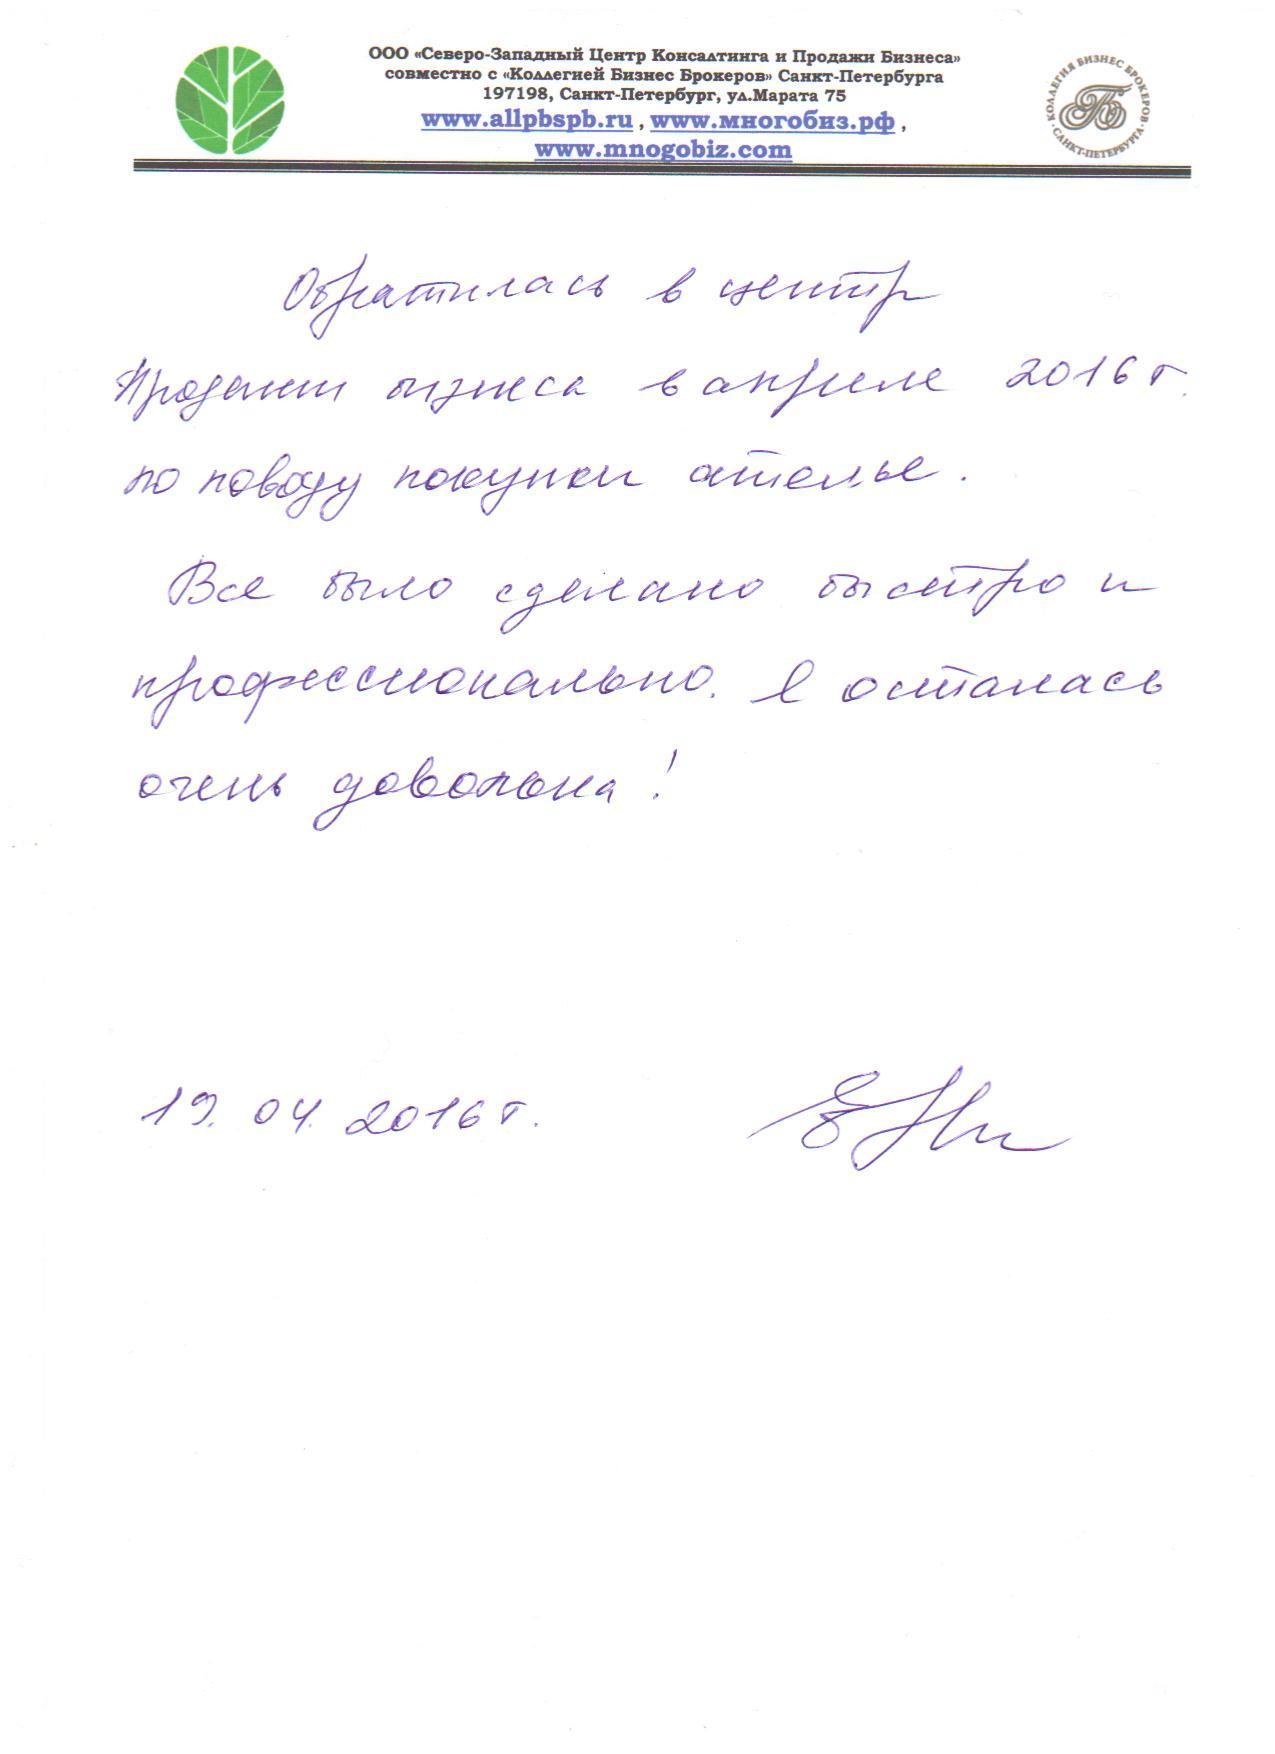 ООО «Северо-Западный Центр Консалтинга и Продажи Бизнеса»
совместно с «Коллегией Бизнес Брокеров» Санкт-Петербурга
197198, Санкт-Петербург, ул.Марата 75
www.allpbspb.ru , www.многобиз.рф ,
www.mnogobiz.com
КОЛЛЕГИЯ БИЗНЕС БРОКЕРОВ
САНКТ-ПЕТЕРБУРГА
Обратилась в центр
Продажи бизнеса в апреле 2016 г.
по поводу покупки ателье.
Все было сделано быстро и
профессионально. Я осталась
очень довольна!
19. 04. 2016 г.